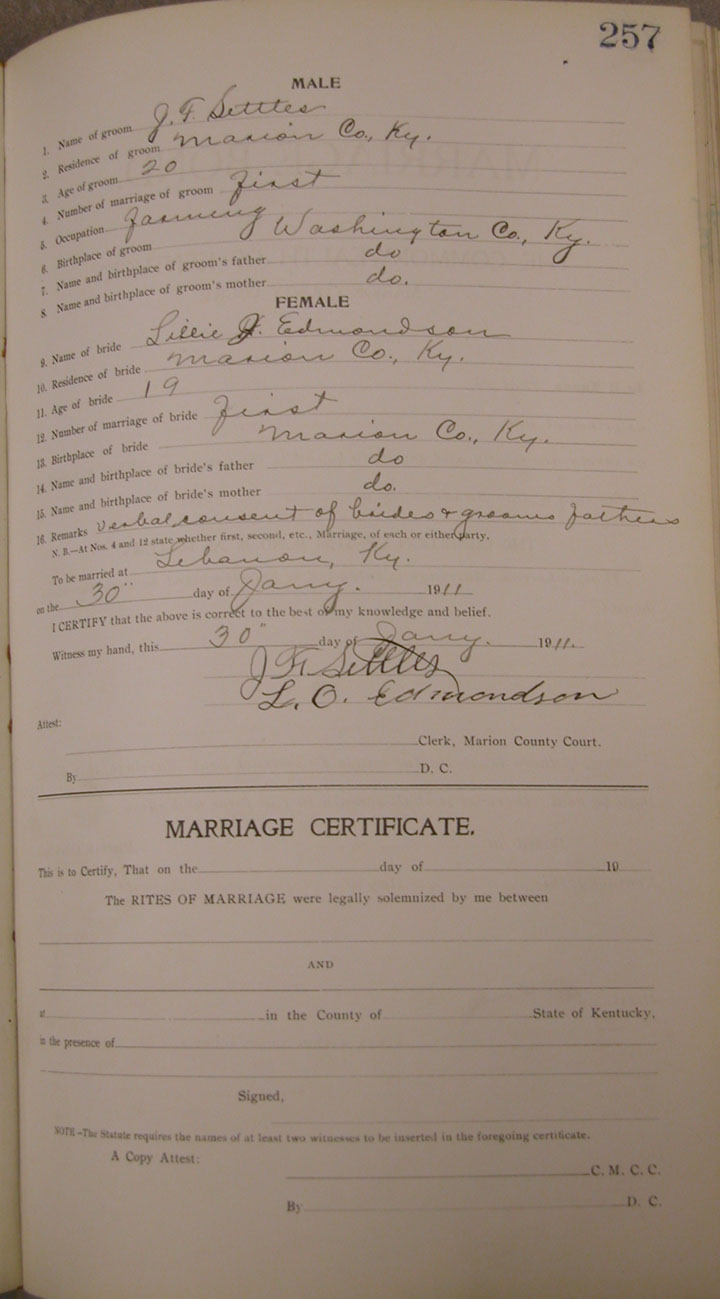 257
MALE
1. Name of groom J. F. Settles
2. Residence of groom Marion Co., Ky.
3. Age of groom 20
4. Number of marriage of groom first
5. Occupation farming
6. Birthplace of groom Washington Co., Ky.
7. Name and birthplace of groom's father do
8. Name and birthplace of groom's mother do.
FEMALE
9. Name of bride Lillie Edmondson
10. Residence of bride Marion Co., Ky.
11. Age of bride 19
12. Number of marriage of bride first
13. Birthplace of bride Marion Co., Ky.
14. Name and birthplace of bride's father do
15. Name and birthplace of bride's mother do.
16. Remarks verbal consent of brides & grooms fathers
N. B.—At Nos. 4 and 12 state whether first, second, etc., Marriage, of each or either party.
To be married at Lebanon, Ky.
on the 30" day of Jany. 1911
I CERTIFY that the above is correct to the best of my knowledge and belief.
Witness my hand, this 30" day of Jany. 1911.
J F Settles
L. O. Edmondson
Attest:
Clerk, Marion County Court.
By D. C.
MARRIAGE CERTIFICATE.
This is to Certify, That on the day of 19
The RITES OF MARRIAGE were legally solemnized by me between
AND
at in the County of State of Kentucky,
in the presence of
Signed,
NOTE—The Statute requires the names of at least two witnesses to be inserted in the foregoing certificate.
A Copy Attest:
C. M. C. C.
By D. C.